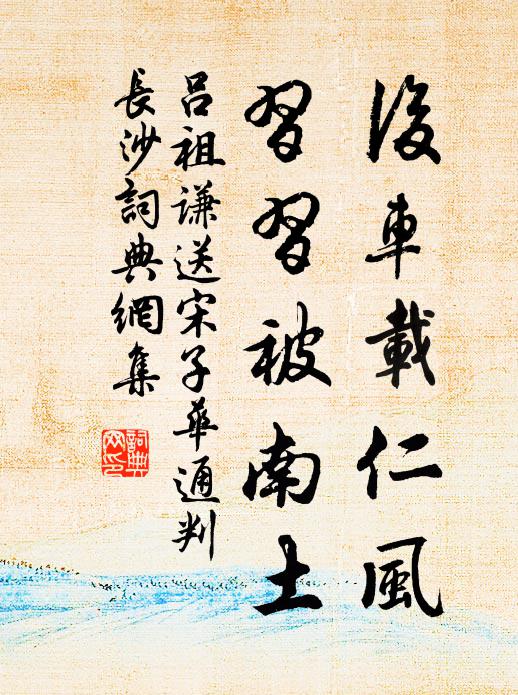 後車載仁風
習習被南土
呂祖謙送宋子華通判
長沙詞典網集
詞典